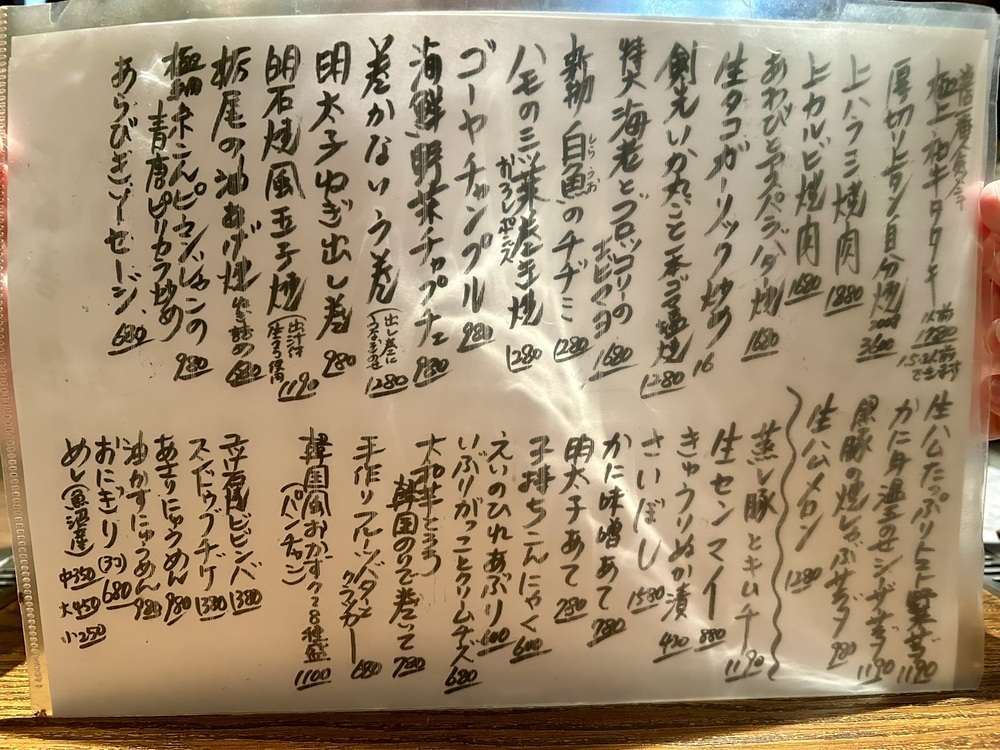 極上和牛タタキ
1780
厚切り上タン自分焼 200g 3600
上ハラミ焼肉 1880
上カルビ焼肉 1680
あわびとアスパラバター焼 1680
生タコガーリック炒め 16
剣先いか丸ごと一本ゴマ塩焼 1280
特大海老とブロッコリーのエビマヨ 1680
新物白魚のチヂミ 1280
しらうお
ハモの三つ葉巻き焼 1280
おろしポン酢
ゴーヤチャンプル 980
海鮮野菜チャプチェ 980
巻かないう巻 1280
(出し巻に
うなぎのせ
明太子ねぎ出し巻 980
明石焼風玉子焼 1190
(出汁付
栃尾の油あげ焼 680
極細糸こんピーマンじゃこの
青唐ピリカラ炒め 980
あらびきソーセージ 680
生ハムたっぷりトマト野菜サラダ 1190
かに身温玉のせシーザーサラダ 1190
黒豚の焼しゃぶサラダ 980
生ハムメロン 1280
蒸し豚とキムチ 1190
生センマイ 880
きゅうりぬか漬 480
さいぼし 1580
かに味噌あて 780
明太子あて 780
子持ちこんにゃく 600
えいのひれあぶり 600
いぶりがっことクリームチーズ 680
韓国のりで巻いて 780
手作りフルーツバターと
クラッカー 680
韓国風おかず 7~8種盛 1100
(パンチャン)
石焼ビビンバ 1380
スンドゥブチゲ 1380
あさりにゅうめん 980
油かすにゅうめん 980
おにぎり(3ケ) 680
めし(魚沼産) 中350 大450 小250